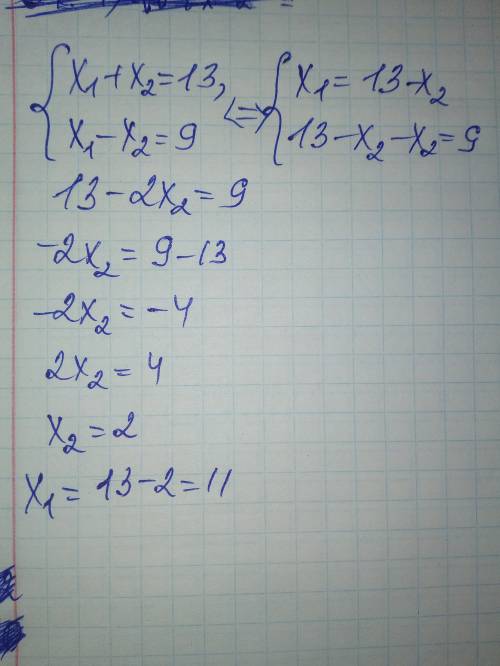 {x₁+x₂=13, <=> {x₁= 13-x₂
x₁-x₂=9 13-x₂-x₂=9
13-2x₂=9
-2x₂= 9-13
-2x₂= -4
2x₂= 4
x₂=2
x₁= 13-2=11